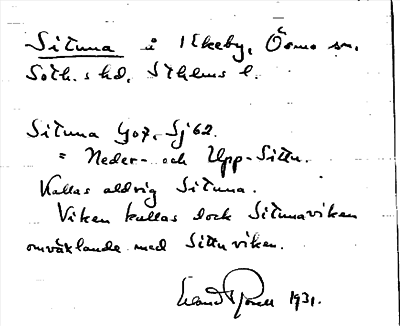 Situna i Ekeby, Ösmo sn.
Soth.s hd, Sthlms l.
Situna Y07, Sj 62.
= Neder- och Upp-Sittu.
Kallas aldrig Situna.
Viken kallas dock Situnaviken
omväxlande med Sittuviken.
1931.